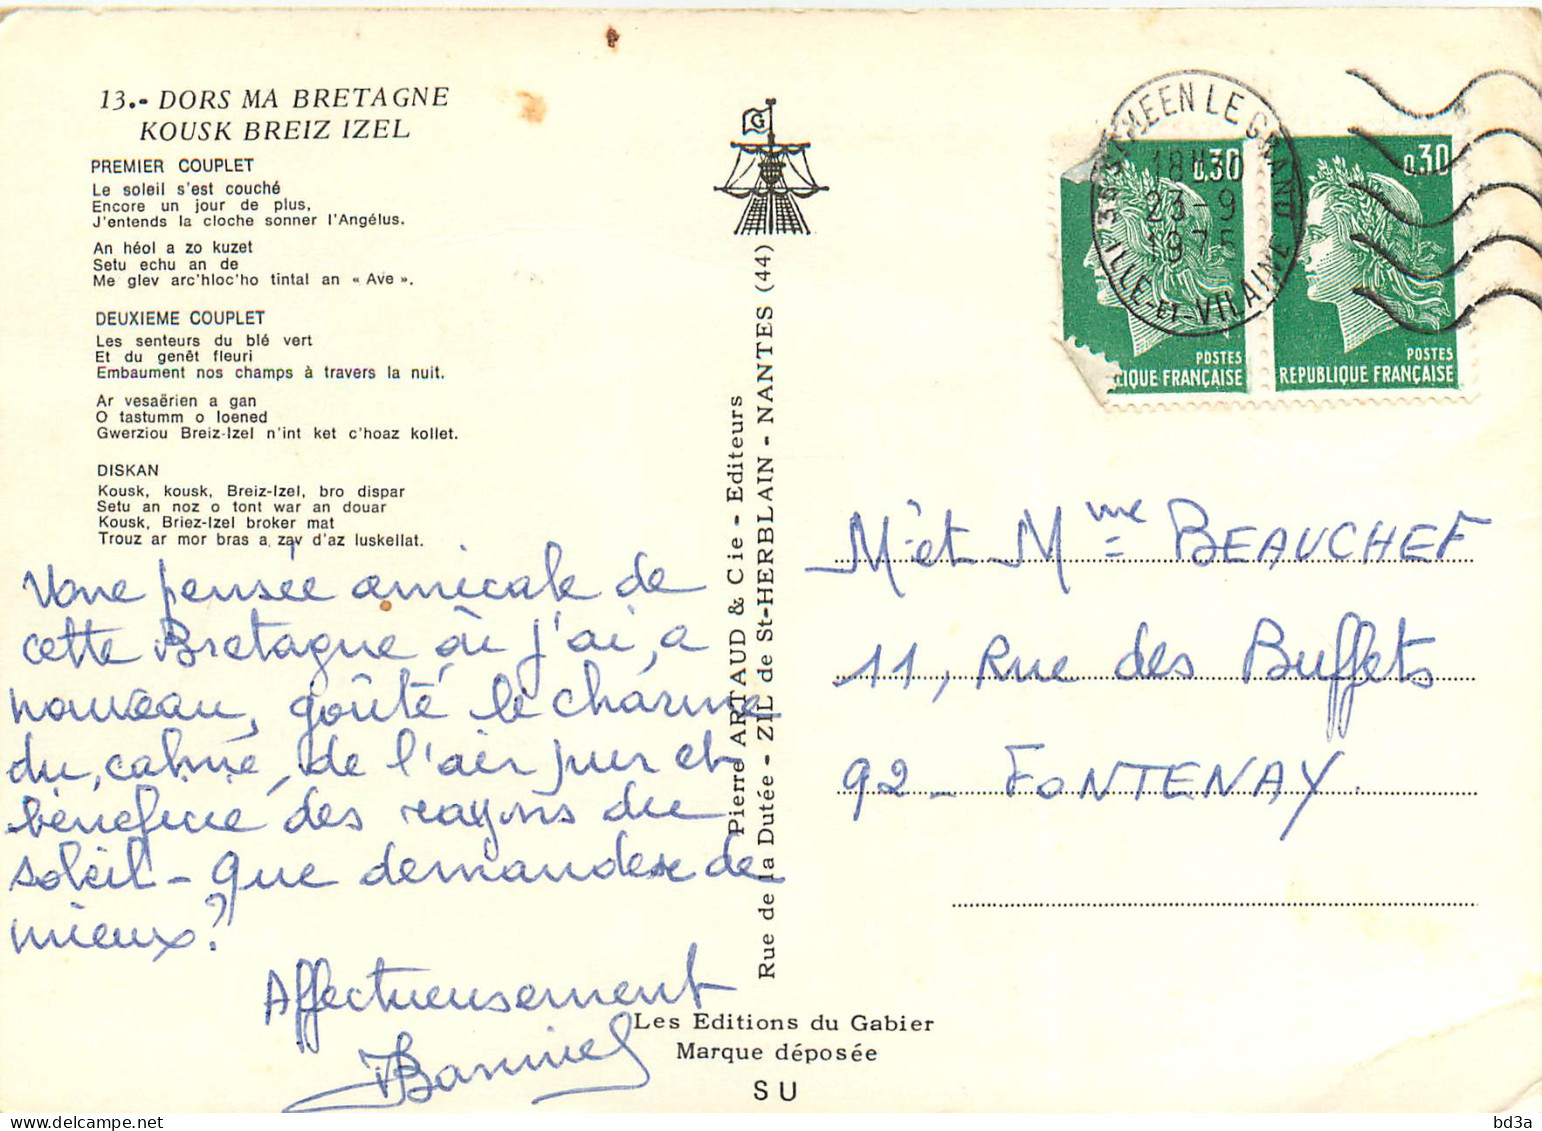 13.- DORS MA BRETAGNE
KOUSK BREIZ IZEL
PREMIER COUPLET
Le soleil s'est couché
Encore un jour de plus,
J'entends la cloche sonner l'Angélus.
An héol a zo kuzet
Setu echu an de
Me glev arc'hloc'ho tintal an « Ave ».
DEUXIEME COUPLET
Les senteurs du blé vert
Et du genêt fleuri
Embaument nos champs à travers la nuit.
Ar vesaërien a gan
O tastumm o loened
Gwerziou Breiz-Izel n'int ket c'hoaz kollet.
DISKAN
Kousk, kousk, Breiz-Izel, bro dispar
Setu an noz o tont war an douar
Kousk, Briez-Izel broker mat
Trouz ar mor bras a zav d'az luskellat.
Une pensée amicale de
cette Bretagne où j'ai, a
nouveau, goûté le charme
du calme, de l'air pur et
bénéficié des rayons du
soleil - que demander de
mieux?
Affectueusement
G
Pierre ARTAUD & Cie - Editeurs
Rue de la Dutée - ZIL de St-HERBLAIN - NANTES (44)
Les Editions du Gabier
Marque déposée
SU
35 ST MEEN LE GRAND
18H30
23-9
1975
ILLE-ET-VILAINE
0.30
POSTES
IQUE FRANÇAISE
0.30
POSTES
REPUBLIQUE FRANÇAISE
M. et Mme BEAUCHEF
11, Rue des Buffets
92 - FONTENAY.
bd3a